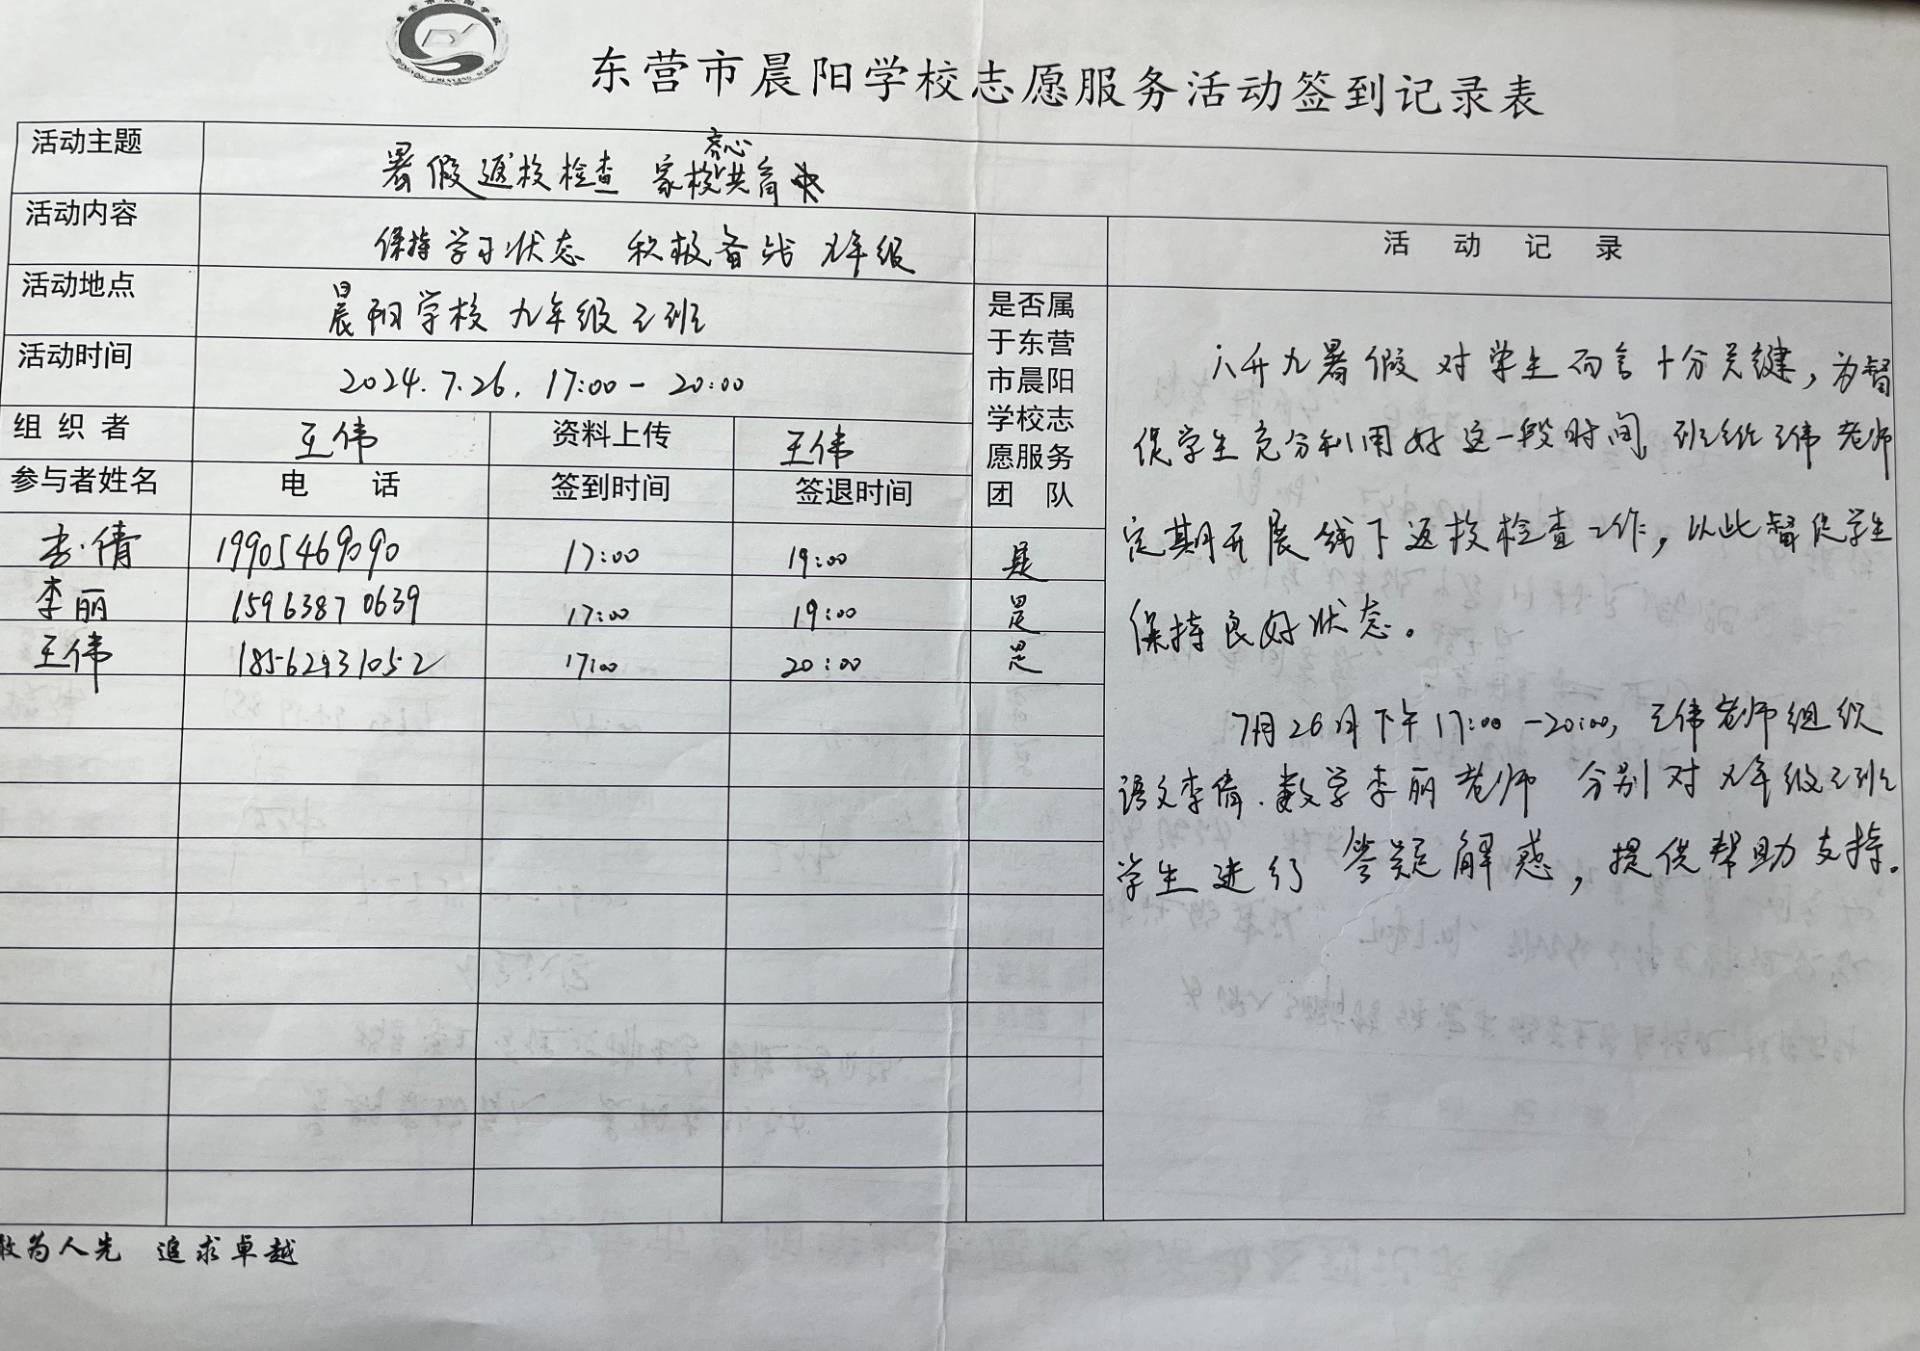 东营市晨阳学校志愿服务活动签到记录表
活动主题 暑假返校检查 家校齐心共育
活动内容 保持学习状态 积极备战 九年级
活动地点 晨阳学校 九年级三班
活动时间 2024.7.26. 17:00-20:00
组织者 王伟 资料上传 王伟
参与者姓名 电 话 签到时间 签退时间
是否属
于东营
市晨阳
学校志
愿服务
团 队
李倩 19905469090 17:00 19:00 是
李丽 15963870639 17:00 19:00 是
王伟 18562931052 17:00 20:00 是
活 动 记 录
八升九暑假对学生而言十分关键，为督
促学生充分利用好这一段时间，班主任王伟老师
定期开展线下返校检查工作，以此督促学生
保持良好状态。
7月26日下午17:00-20:00，王伟老师组织
语文李倩、数学李丽老师 分别对九年级三班
学生进行答疑解惑，提供帮助支持。
敢为人先 追求卓越